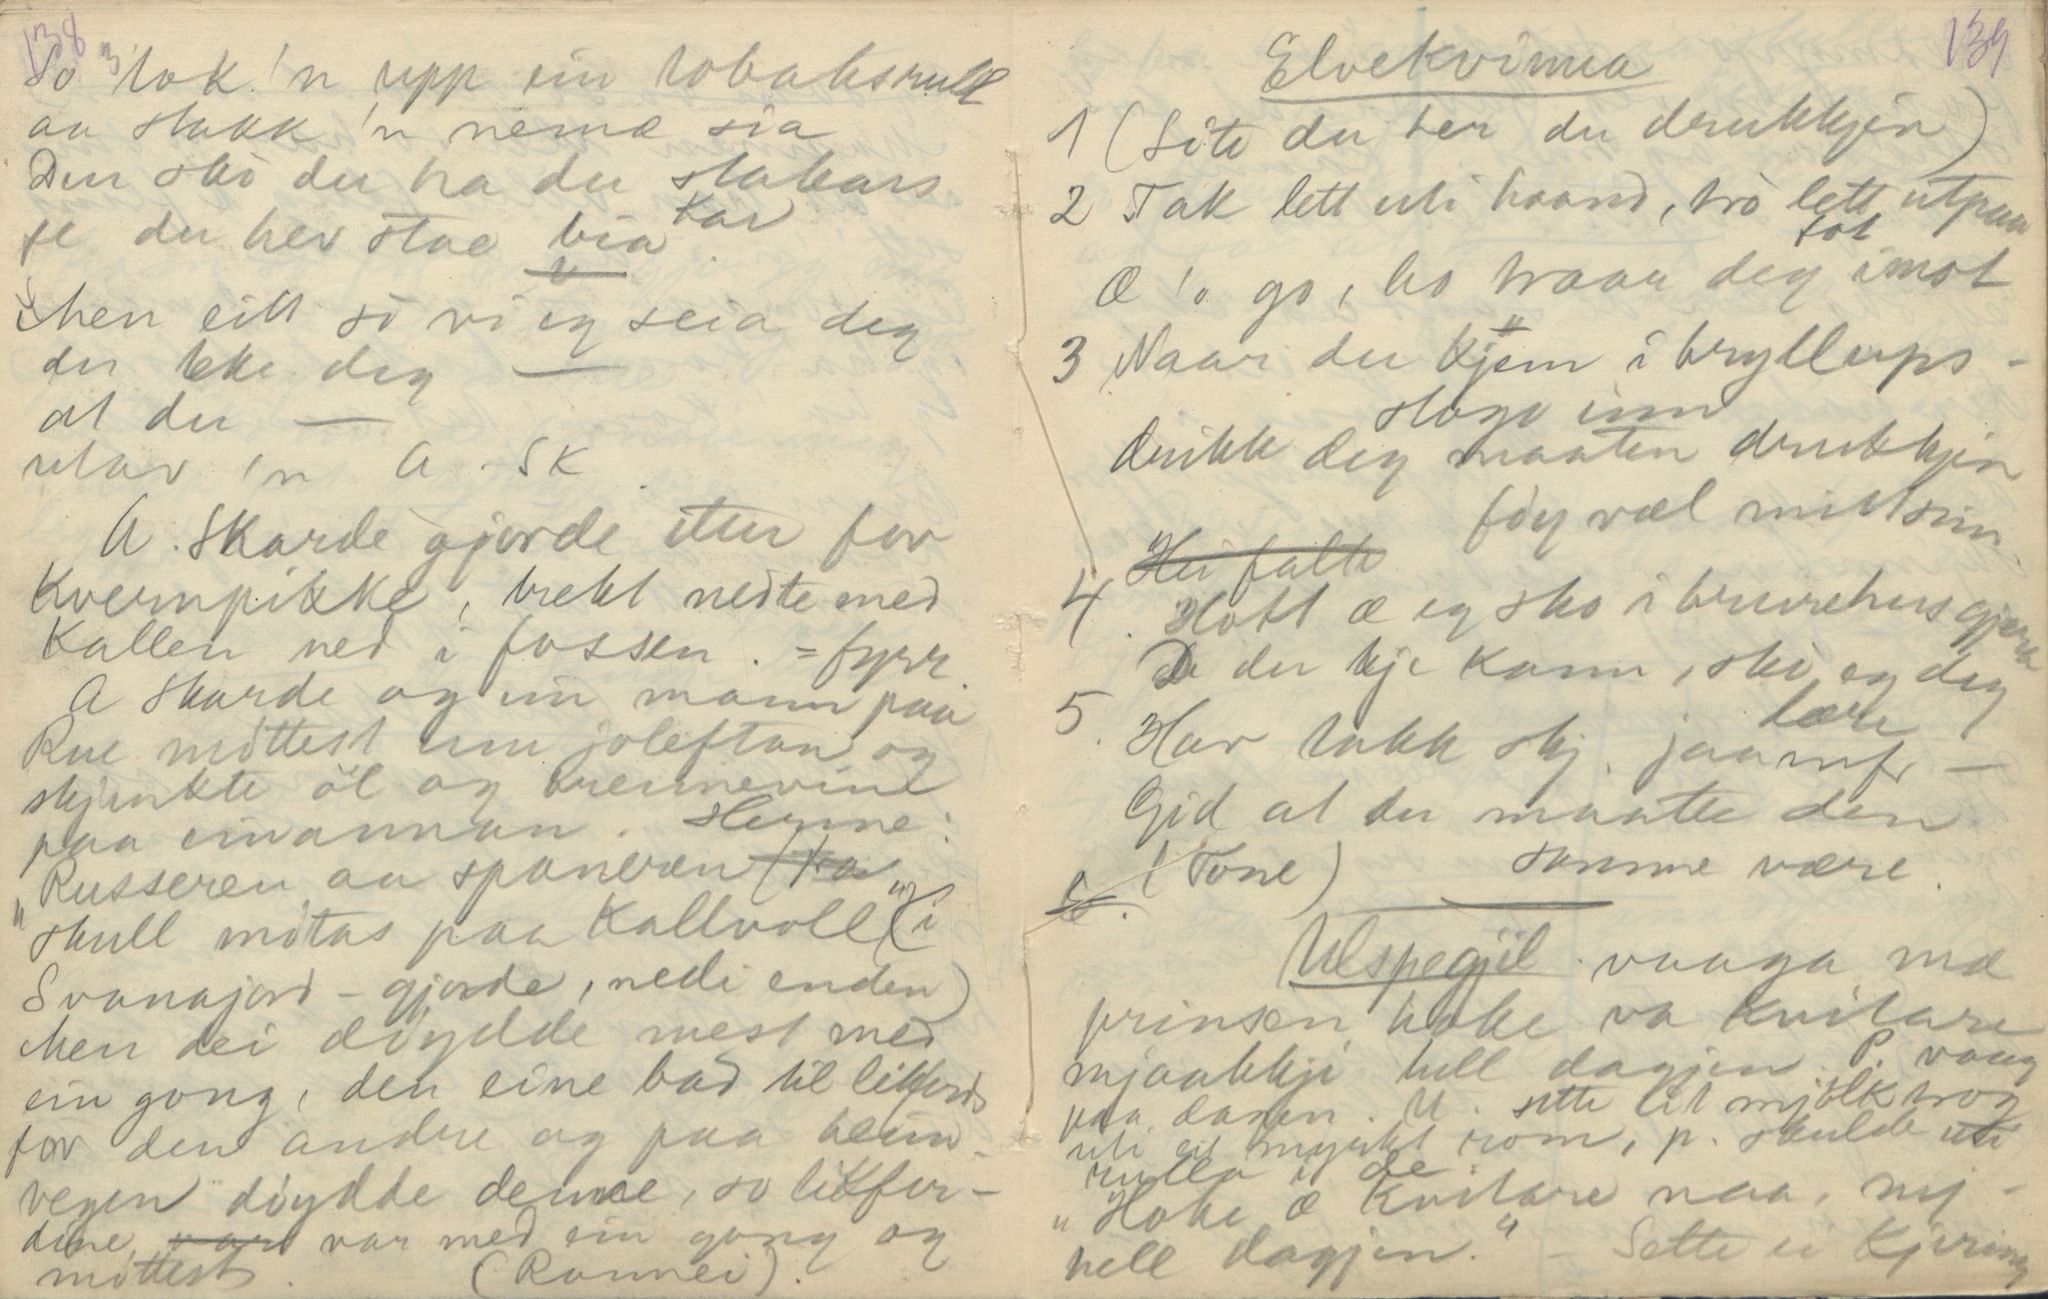 138
So tok 'n upp ein tobaksrull
aa stakk 'n neme sia
Den ska du ha du stakars
kar
fe du hev stae bia
Men eitt so vi eg seia deg
du ikke deg —
at du —
utav 'n A. Sk
A. Skarde gjorde etter for
Kvernpikke, trekt nedte med
Kallen ned i fossen. = fyrr
A Skarde og ein mann paa
Rue möttest um joleftan og
skjinkte öl og brennevine
paa einannan. Hermne:
"Russeren aa spaneren (ha
skull mötas paa Kallvoll" (i
Svanajord - gjorde, nedi enden)
Men dei döydde mest med
ein gong, den eine bad til likferd
for den andre og paa heim-
vegen döydde denne, so likfer-
dine, var var med ein gong og
möttest. (Rannei).
139
Elvekvinna
1 (Site du her du drukkjin)
2 Tak lett uti haand, trö lett utpaa
fot
Æ 'o go, ho traar deg imot
3 Naar du kjem i bryllups-
stogo inn
drikk deg maaten drukkjin
föy væl mitt sinn
4. Hei falt
Hott æ eg sko i brurehus gjera
De du kje kann, ska eg deg
lære
5. Hav takk skj. jaamfr —
Gid at du maatte den
samme være.
6. (Tone)
Ulspegjil vaaga mæ
prinsen hoke va kvitare
mjaakkji hell dagjen. P. vaag
paa dagen. U. sette eit mjölktrog
uti eit myrkt rom, p. skulde uti
rulla i de
"Hoke æ kvitare naa, mj-
hell dagjen." — Sette ei kjering